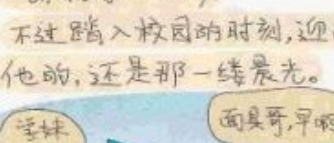 不过踏入校园的时刻,迎
他的,还是那一缕晨光。
学妹
面具哥,早啊